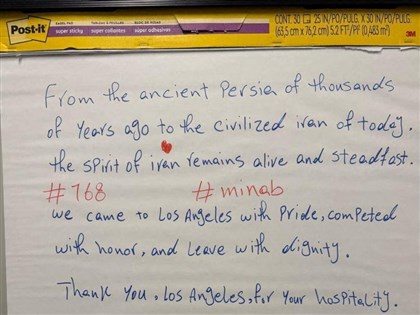 Post-it
super sticky super collantes super adhesivas
CONT. 30 25 IN/PO/PULG. X 30 IN/PO/PULG.
(63,5 cm x 76,2 cm) 5.2 FT²/PI² (0,483 m²)
3M
From the ancient Persia of thousands
of Years ago to the civilized iran of today.
the spirit of iran remains alive and steadfast.
#168 #minab
we came to Los Angeles with Pride, competed
with honor, and Leave with dignity.
Thank You, Los Angeles, for Your hospitality.